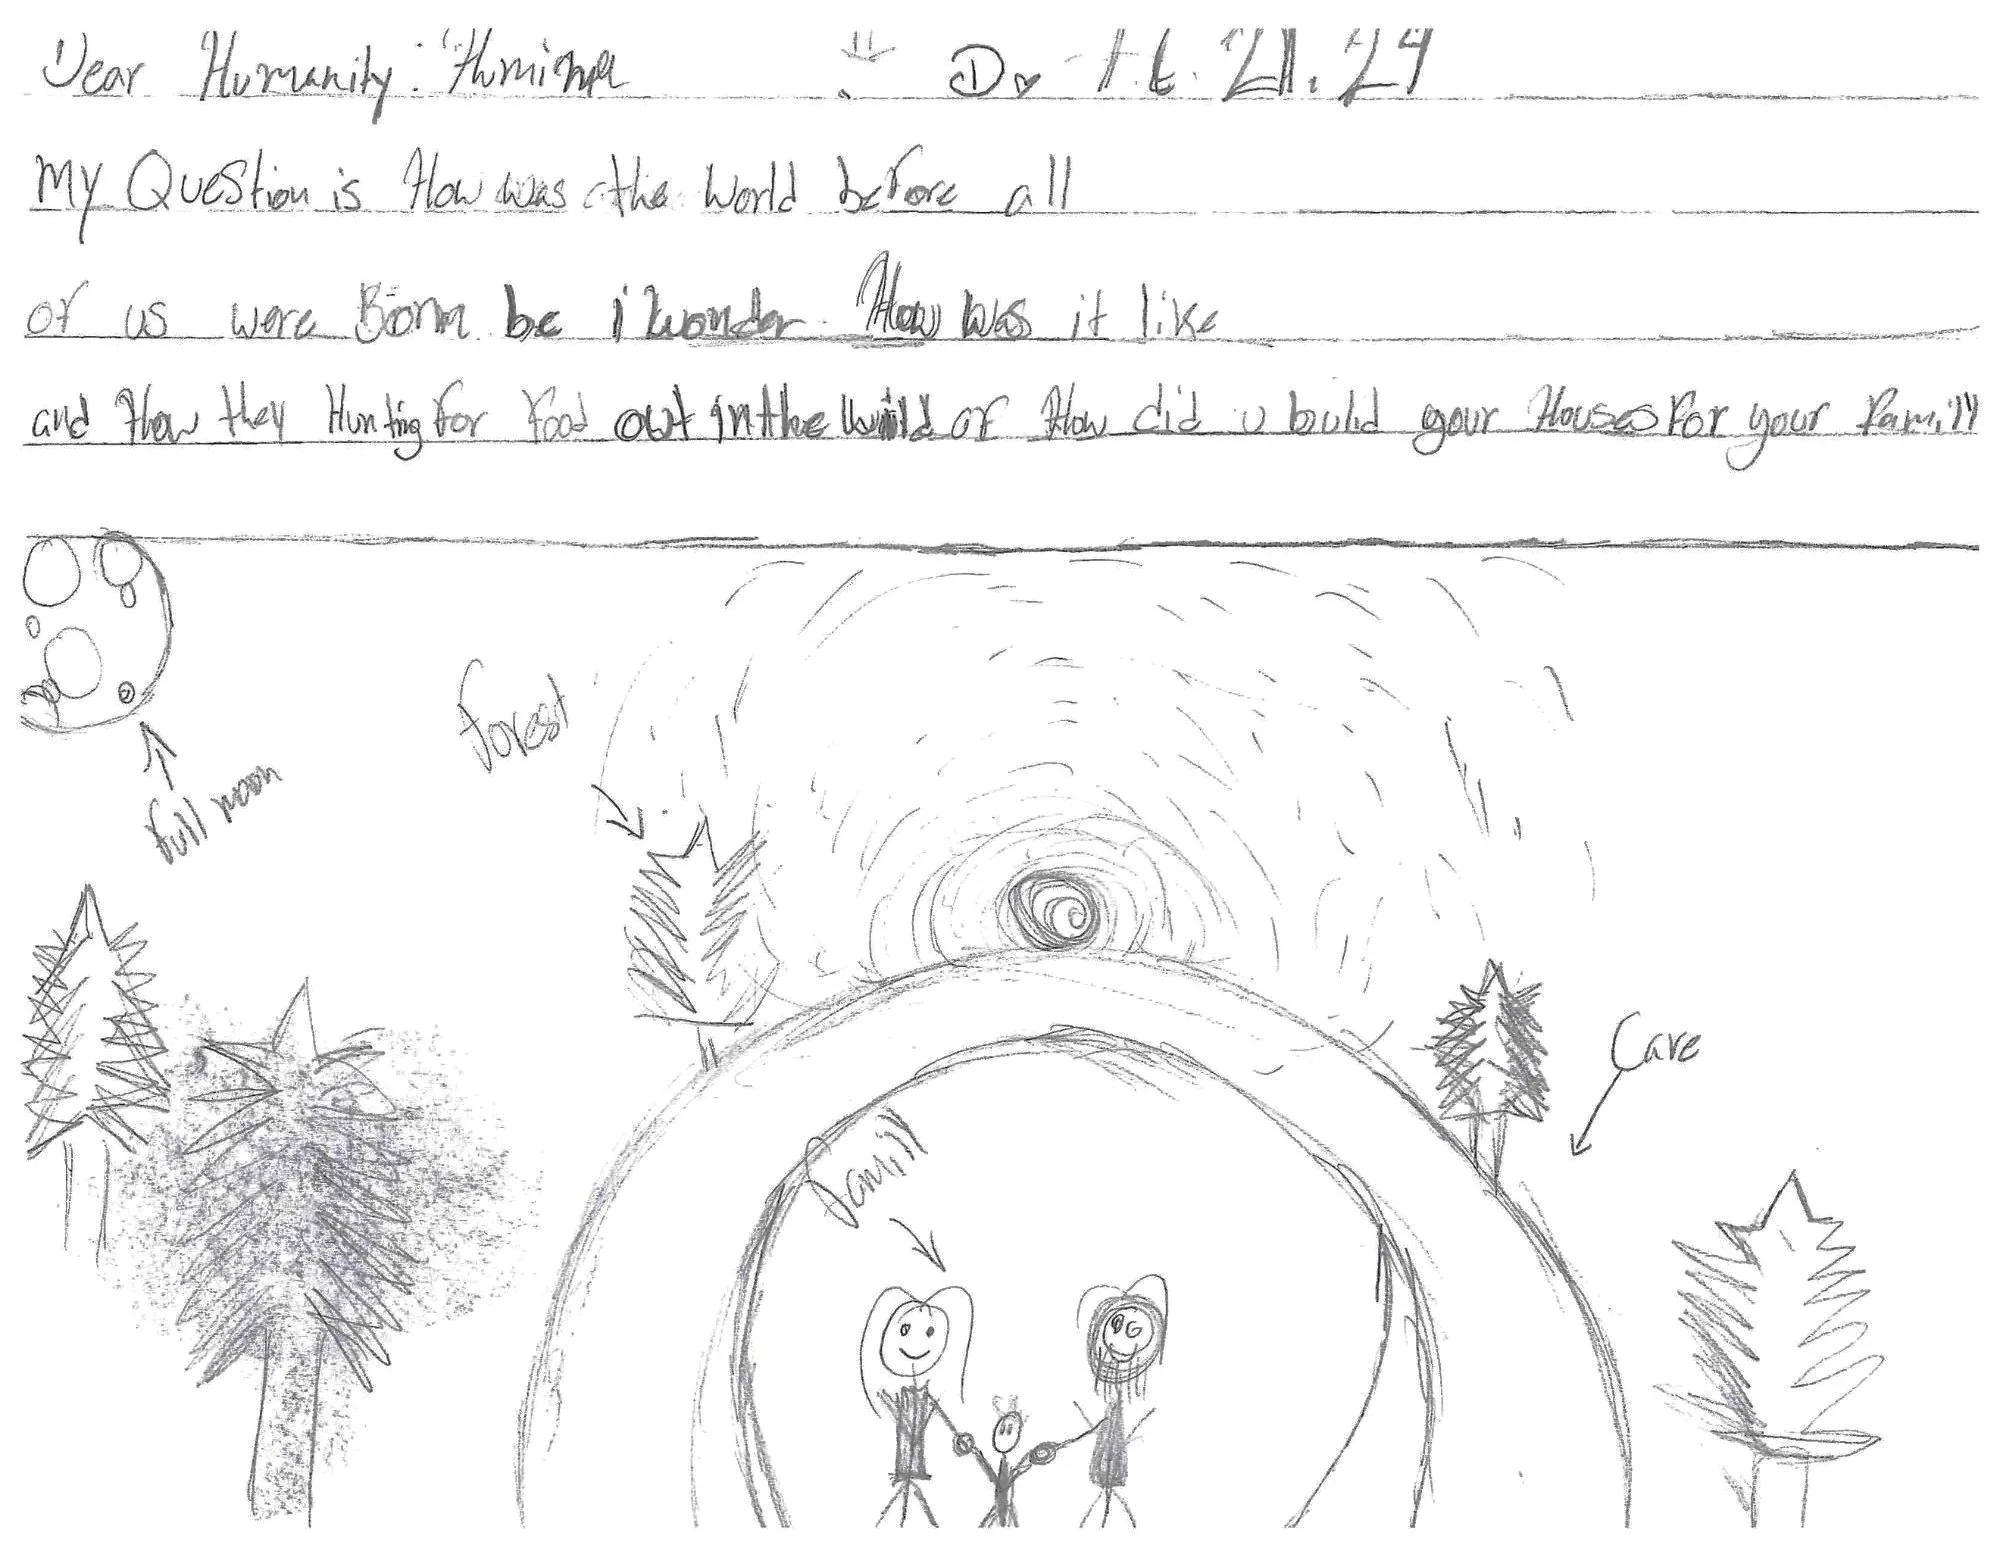 Dear Humanity:
My Question is How was the World before all
of us were Born be i wonder How was it like
and How they Hunting for food out in the wild of How did u build your Houses for your Family
Full moon
Forest
Care
Family